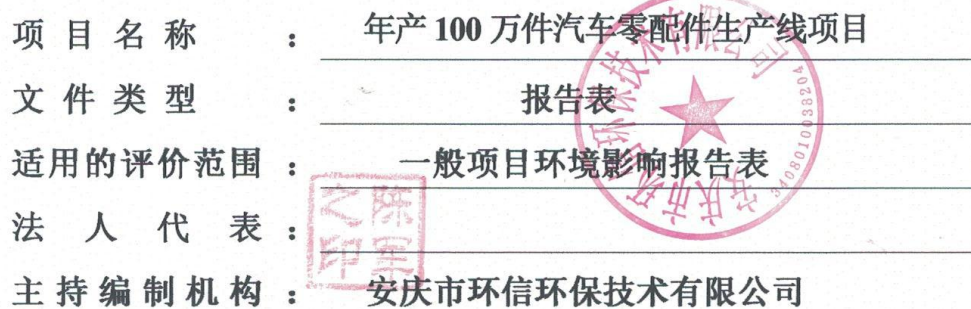 项目名称 : 年产100万件汽车零配件生产线项目
文件类型 : 报告表
适用的评价范围 : 一般项目环境影响报告表
法人代表 :
主持编制机构 : 安庆市环信环保技术有限公司
安庆市环信环保技术有限公司
3408010038204